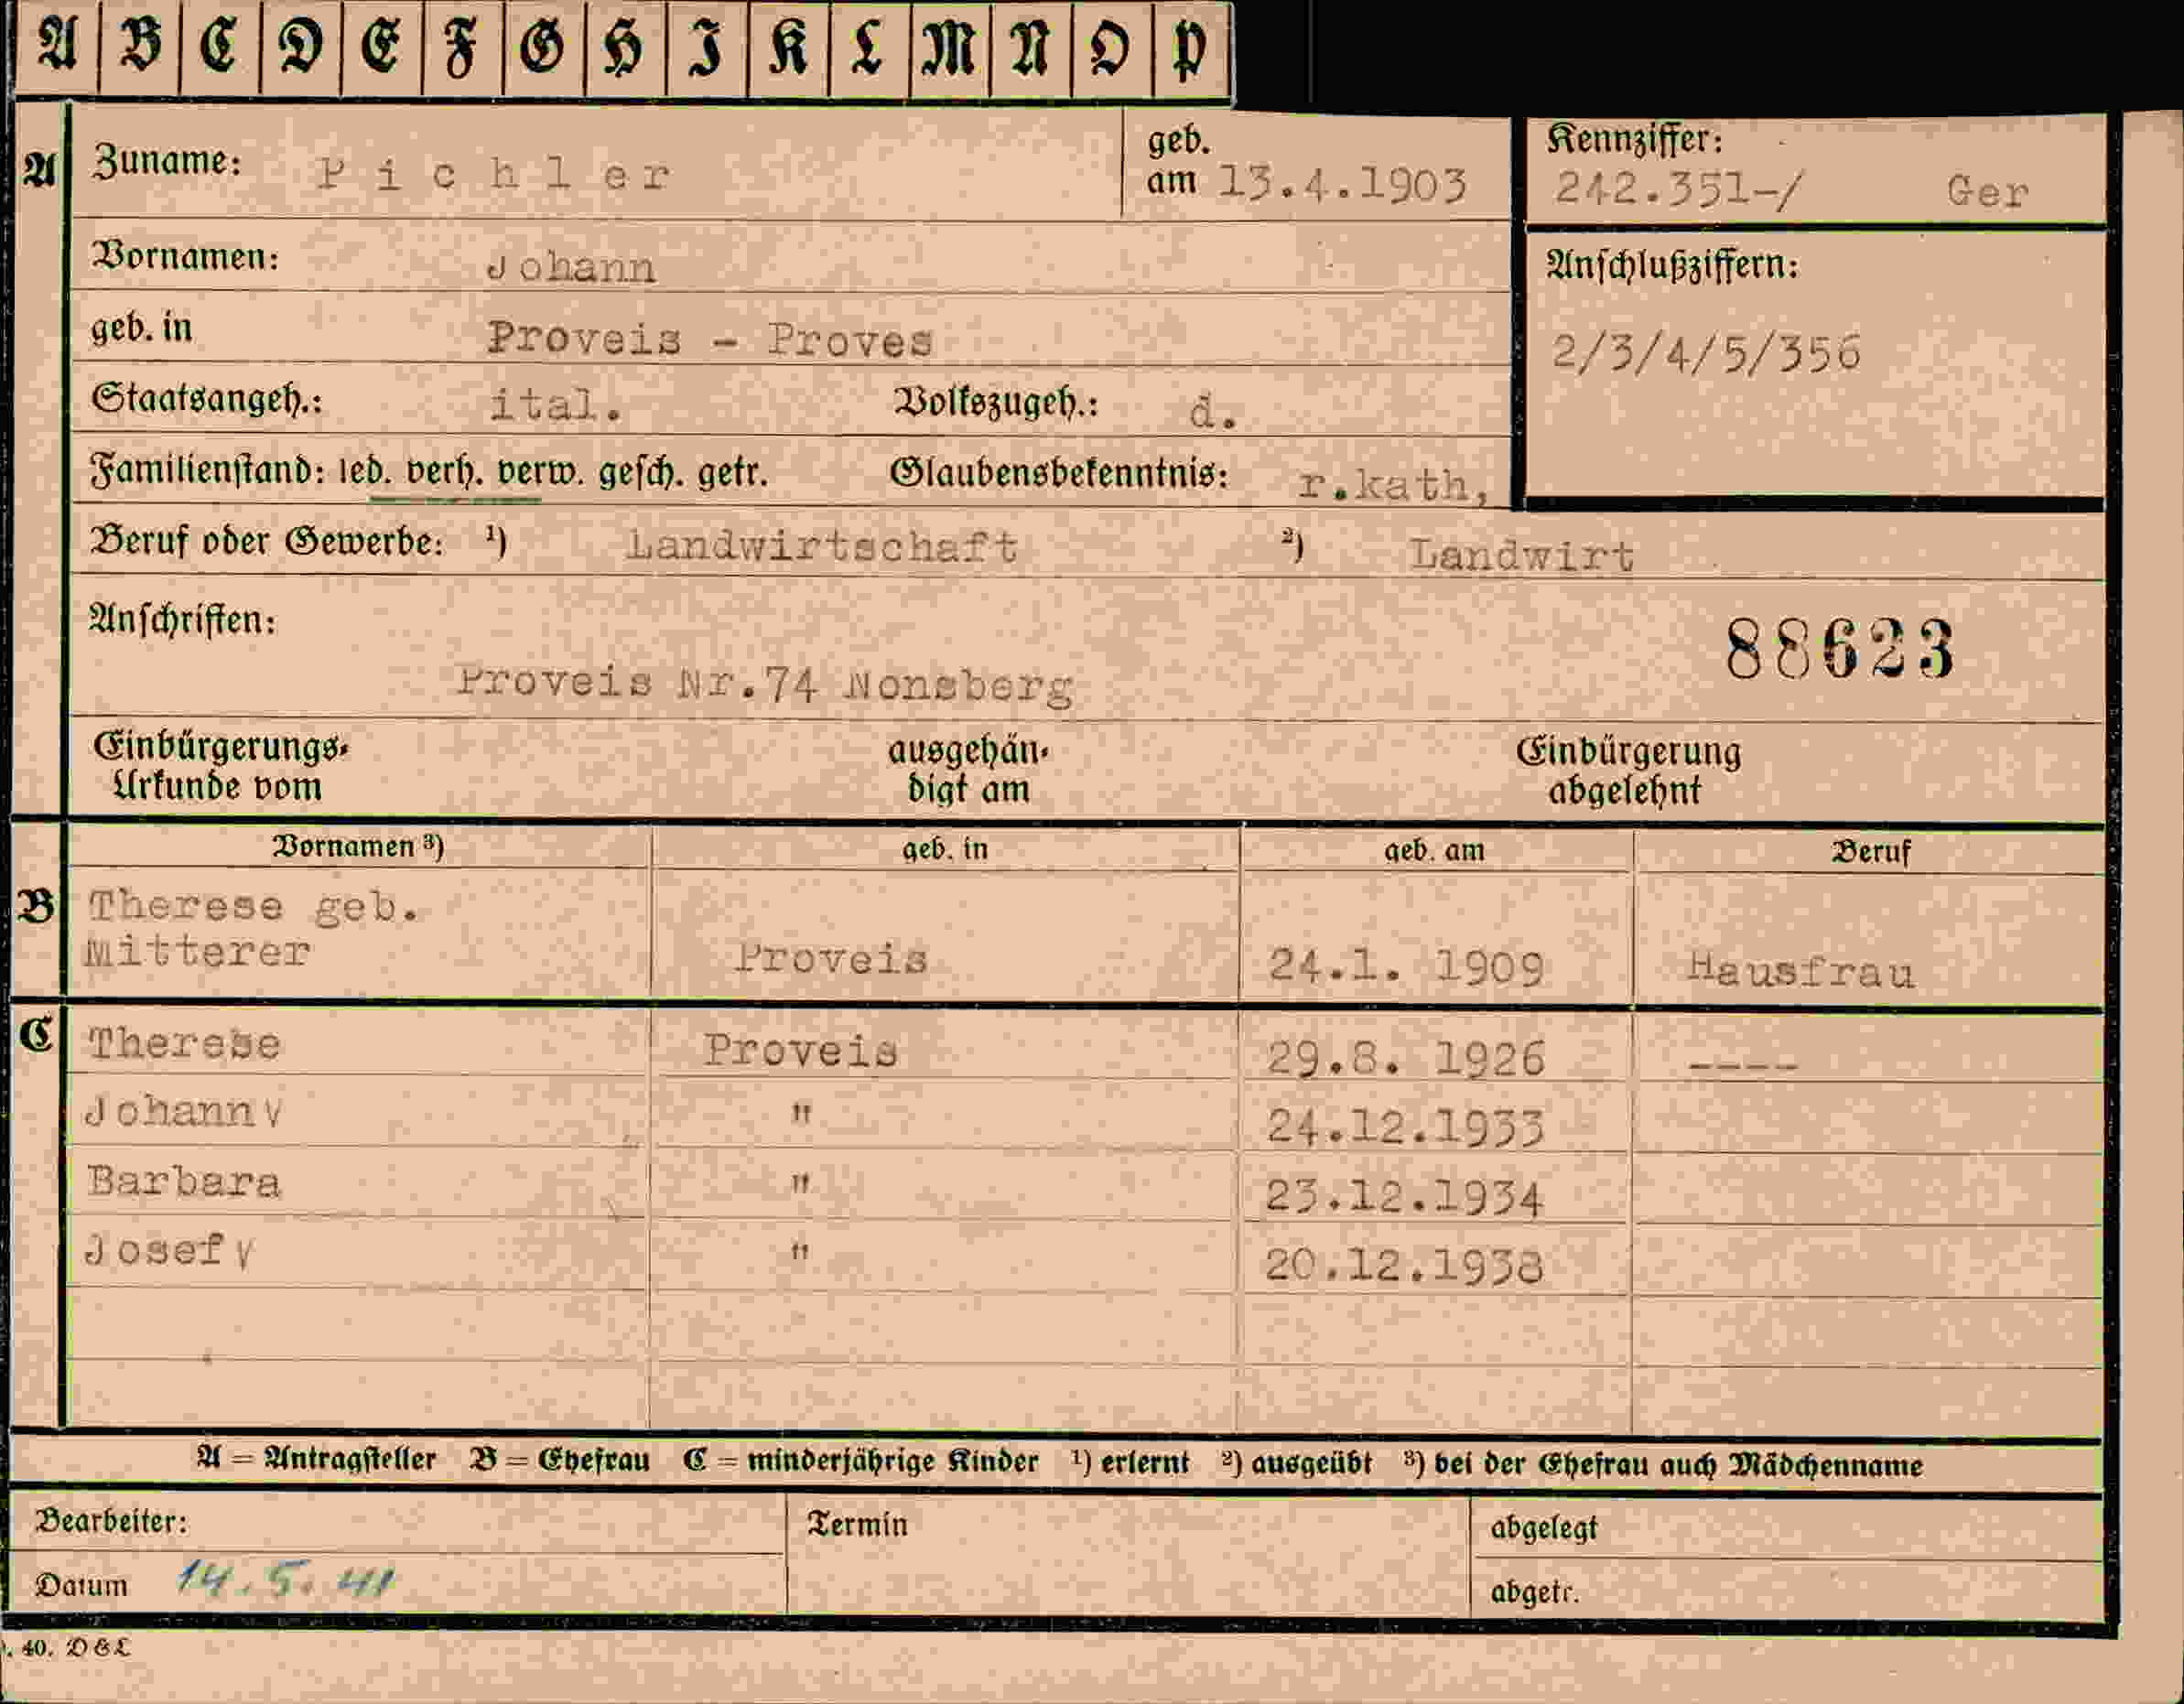 A B C D E F G H I K L M N O P
A Zuname: Pichler geb. am 13.4.1903 Kennziffer: 242.351-/ Ger
Vornamen: Johann Anschlußziffern:
geb. in Proveis - Proves 2/3/4/5/356
Staatsangeh.: ital. Volkszugeh.: d.
Familienstand: led. verh. verw. gesch. getr. Glaubensbekenntnis: r.kath,
Beruf oder Gewerbe: ¹) Landwirtschaft ²) Landwirt
Anschriften: 88623
Proveis Nr.74 Nonsberg
Einbürgerungs- ausgehän- Einbürgerung
Urkunde vom digt am abgelehnt
Vornamen ³) geb. in geb. am Beruf
B Therese geb.
Mitterer Proveis 24.1. 1909 Hausfrau
C Therese Proveis 29.8. 1926 ----
Johann v " 24.12.1933
Barbara " 23.12.1934
Josef v " 20.12.1938
A = Antragsteller B = Ehefrau C = minderjährige Kinder ¹) erlernt ²) ausgeübt ³) bei der Ehefrau auch Mädchenname
Bearbeiter: Termin abgelegt
Datum 14.5.41 abgetr.
. 40. D & L